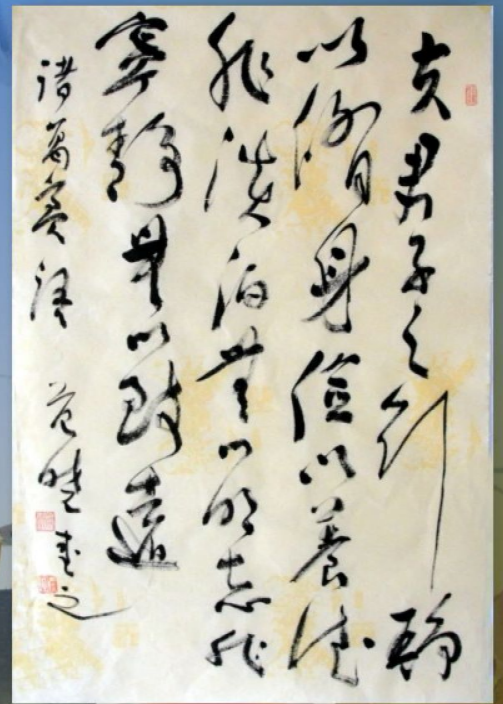 夫君子之行靜
以脩身儉以養德
非淡泊無以明志非
寧靜無以致遠
諸葛亮語 范書之